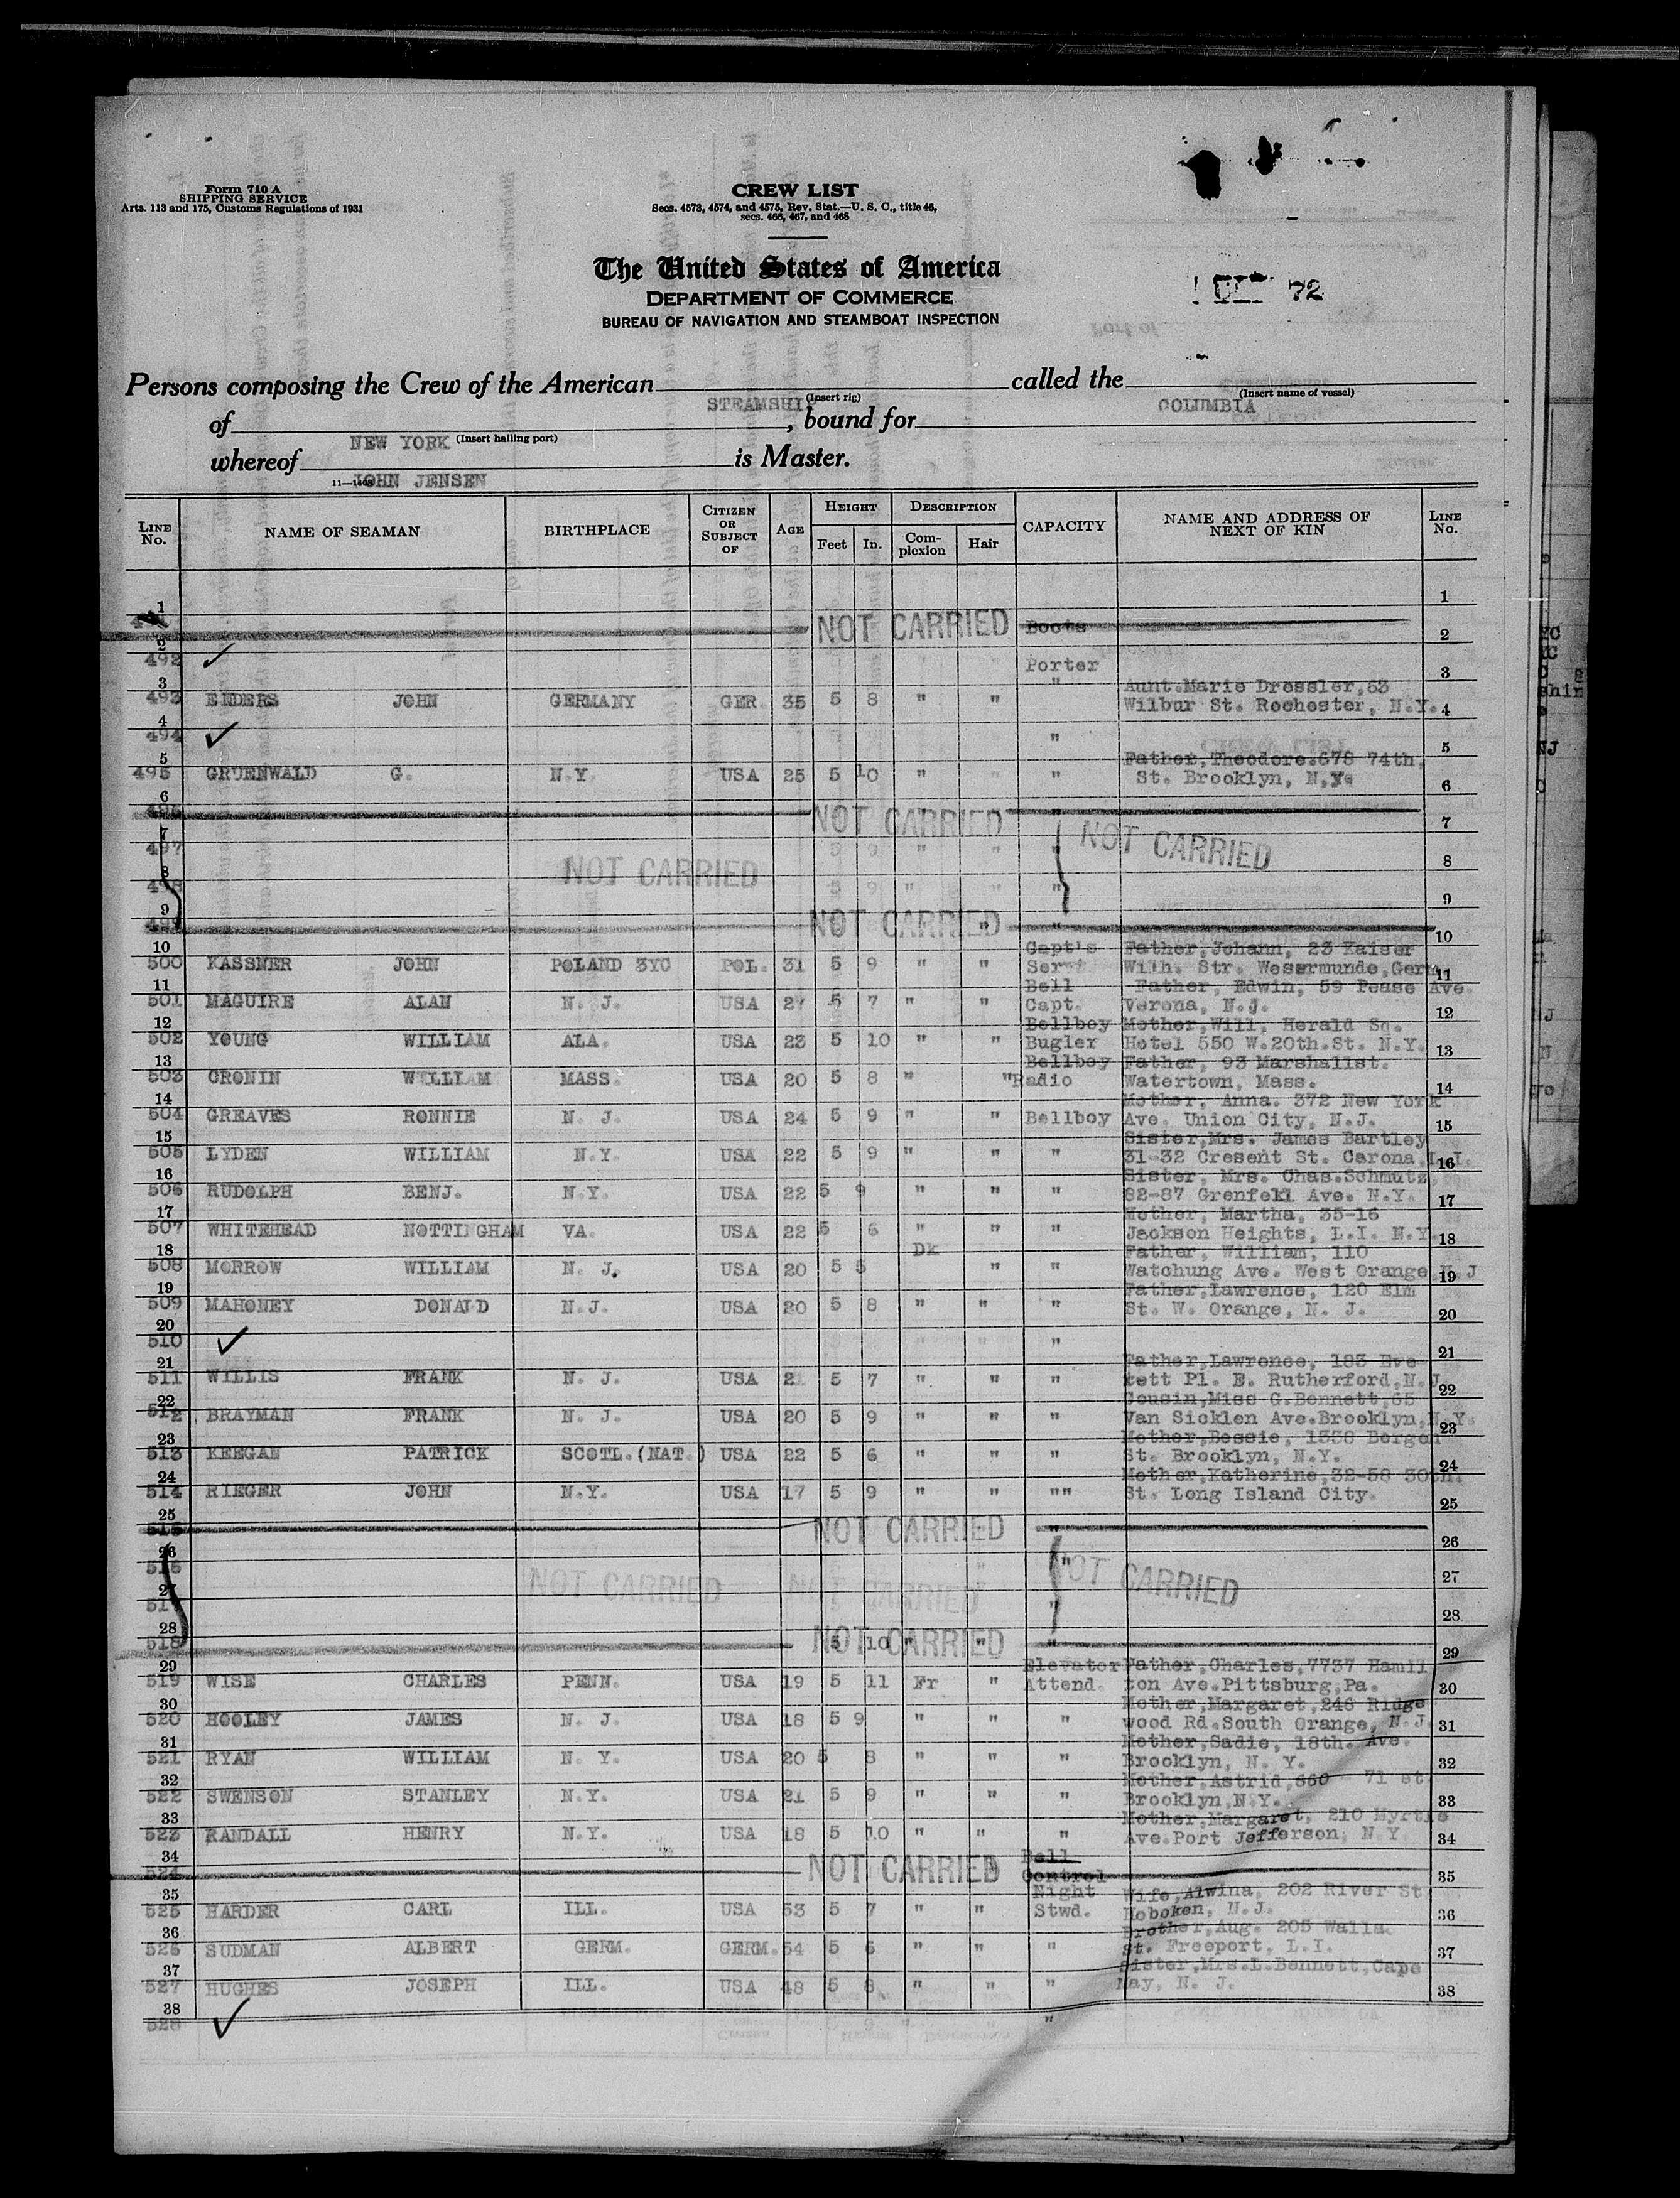 Form 710 A
SHIPPING SERVICE
Arts. 113 and 175, Customs Regulations of 1931
CREW LIST
Secs. 4573, 4574, and 4575, Rev. Stat.—U. S. C., title 46,
secs. 466, 467, and 468
The United States of America
DEPARTMENT OF COMMERCE
BUREAU OF NAVIGATION AND STEAMBOAT INSPECTION
72
Persons composing the Crew of the American STEAMSHIP (Insert rig) called the COLUMBIA (Insert name of vessel)
of NEW YORK (Insert hailing port), bound for
whereof JOHN JENSEN is Master.
LINE No. NAME OF SEAMAN BIRTHPLACE CITIZEN OR SUBJECT OF AGE HEIGHT Feet In. DESCRIPTION Complexion Hair CAPACITY NAME AND ADDRESS OF NEXT OF KIN LINE No.
1 1
2 NOT CARRIED Boots 2
492 Porter
3 3
493 ENDERS JOHN GERMANY GER. 35 5 8 " " " Aunt.Marie Dressler,63 Wilbur St. Rochester, N.Y.
4 4
494 "
5 5
495 GRUENWALD G. N.Y. USA 25 5 10 " " " Father,Theodore.678 74th, St. Brooklyn, N.Y.
6 6
496 NOT CARRIED "
7 7
497 5 9 " " " NOT CARRIED
8 NOT CARRIED 8
498 9 " " "
9 9
499 NOT CARRIED " "
10 10
500 KASSNER JOHN POLAND 3YC POL. 31 5 9 " " Capt's Serv. Father,Johann, 23 Kaiser Wilh. Str. Wesermunde,Germ.
11 11
501 MAGUIRE ALAN N. J. USA 27 5 7 " " Bell Capt. Father, Edwin, 59 Pease Ave. Verona, N.J.
12 12
502 YOUNG WILLIAM ALA. USA 23 5 10 " " Bellboy Bugler Mother,Will, Herald Sq. Hotel 550 W.20th.St. N.Y.
13 13
503 CRONIN WILLIAM MASS. USA 20 5 8 " " Bellboy Radio Father, 93 Marshallst. Watertown, Mass.
14 14
504 GREAVES RONNIE N. J. USA 24 5 9 " " Bellboy Mother, Anna. 372 New York Ave. Union City, N.J.
15 15
505 LYDEN WILLIAM N.Y. USA 22 5 9 " " " Sister,Mrs. James Bartley 31-32 Cresent St. Corona,L.I.
16 16
506 RUDOLPH BENJ. N.Y. USA 22 5 9 " " " Sister, Mrs. Chas.Schmutz 82-87 Grenfell Ave. N.Y.
17 17
507 WHITEHEAD NOTTINGHAM VA. USA 22 5 6 " " " Mother, Martha, 35-16 Jackson Heights, L.I. N.Y.
18 18
508 MORROW WILLIAM N. J. USA 20 5 5 Dk " " Father, William, 110 Watchung Ave. West Orange N.J
19 19
509 MAHONEY DONALD N.J. USA 20 5 8 " " " Father,Lawrence, 120 Elm St. W. Orange, N. J.
20 20
510 " "
21 21
511 WILLIS FRANK N. J. USA 5 7 " " " Father,Lawrence, 183 Eve rett Pl. E. Rutherford,N.J.
22 22
512 BRAYMAN FRANK N. J. USA 20 5 9 " " " Cousin,Miss G.Bennett,65 Van Sicklen Ave.Brooklyn,N.Y.
23 23
513 KEEGAN PATRICK SCOTL.(NAT.) USA 22 5 6 " " " Mother,Bessie, 1338 Bergen St. Brooklyn, N.Y.
24 24
514 RIEGER JOHN N.Y. USA 17 5 9 " " "" Mother,Katherine,32-58 30th. St. Long Island City.
25 25
515 NOT CARRIED "
26 26
516 " " NOT CARRIED
27 NOT CARRIED NOT CARRIED 27
517 "
28 28
518 NOT CARRIED 5 10 " " "
29 29
519 WISE CHARLES PENN. USA 19 5 11 Fr " Elevator Attend. Father,Charles,7737 Hamil ton Ave.Pittsburg,Pa.
30 30
520 HOOLEY JAMES N. J. USA 18 5 9 " " " Mother,Margaret,246 Ridge wood Rd.South Orange, N.J.
31 31
521 RYAN WILLIAM N. Y. USA 20 5 8 " " " Mother,Sadie, 18th. Ave. Brooklyn, N. Y.
32 32
522 SWENSON STANLEY N.Y. USA 21 5 9 " " " Mother,Astrid,660 71 st. Brooklyn,N.Y.
33 33
523 RANDALL HENRY N.Y. USA 18 5 10 " " " Mother,Margaret, 210 Myrtle Ave.Port Jefferson, N.Y
34 34
524 NOT CARRIED Bell Control
35 35
525 HARDER CARL ILL. USA 53 5 7 " " Night Stwd. Wife,Alwina, 202 River St. Hoboken, N.J.
36 36
526 SUDMAN ALBERT GERM. GERM. 54 5 6 " " " Brother,Aug. 205 Walla. St. Freeport, L.I.
37 37
527 HUGHES JOSEPH ILL. USA 48 5 8 " " " Sister,Mrs.L.Bennett,Cape May, N. J.
38 38
528 "